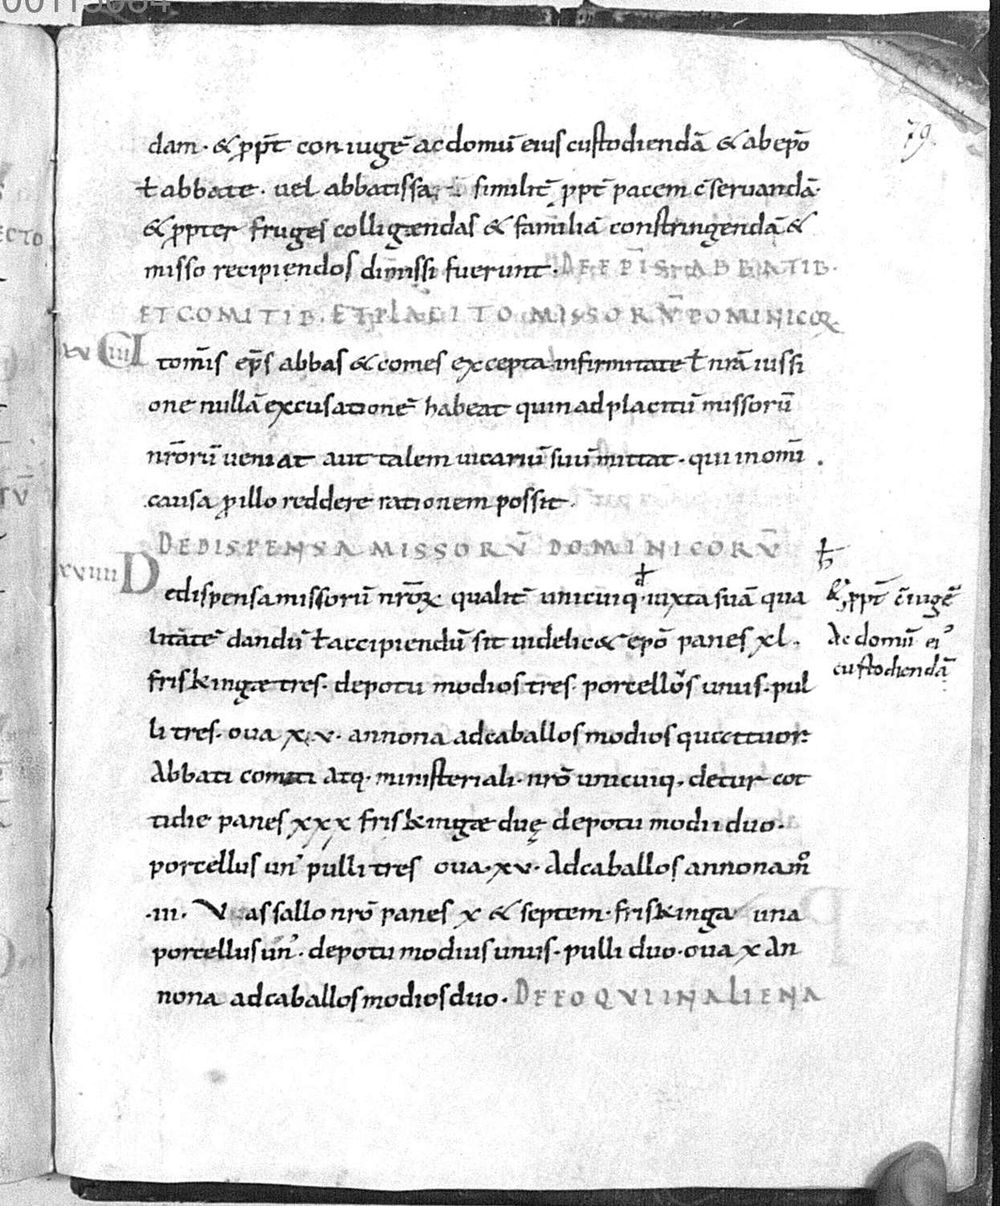 00113084
79.
dam · & ꝓpt̄ coniugē ac domū eius custodiendā & ab epō
ł abbate · uel abbatissa similit̄ ꝓpt̄ pacem c̄seruandā ·
& ꝓpter fruges colligendas & familiā constringendā &
misso recipiendos dimissi fuerunt · DE EPIS ABBATIB ·
ET COMITIB · ET PLACITO MISSORV̄ DOMINICOꝜ
XVIII
UT om̄is ep̄s abbas & comes excepta infirmitate ł nr̄a iussi
one nullā excusationē habeat quin ad placitū missorū
nr̄orū ueniat aut talem uicariū suū mittat · qui in om̄i
causa ꝑ illo reddere rationem possit ·
DE DISPENSA MISSORV̄ DOMINICORV̄
XVIIII
De dispensa missorū nr̄oꝝ qualit̄ unicuiq · iuxta suā qua
litatē dandū ł accipiendū sit uidelic& epō panes xl ·
friskingæ tres · de potu modios tres · porcellos unus · pul
li tres · oua xv · annona ad caballos modios quattuor
Abbati comiti atq · ministeriali · nr̄o unicuiq · detur cot
tidie panes xxx friskingæ duę de potu modii duo ·
porcellus un᾽ pulli tres oua · xv · Ad caballos annona m̊
· iii · Vassallo nr̄o panes x & septem · friskinga una
porcellus un᾽ · de potu modius unus · pulli duo · oua x An
nona ad caballos modios duo · DE EO QVI IN ALIENA
& ꝓpt̄ c̄iugē
Ac domū ei᾽
custodiendā